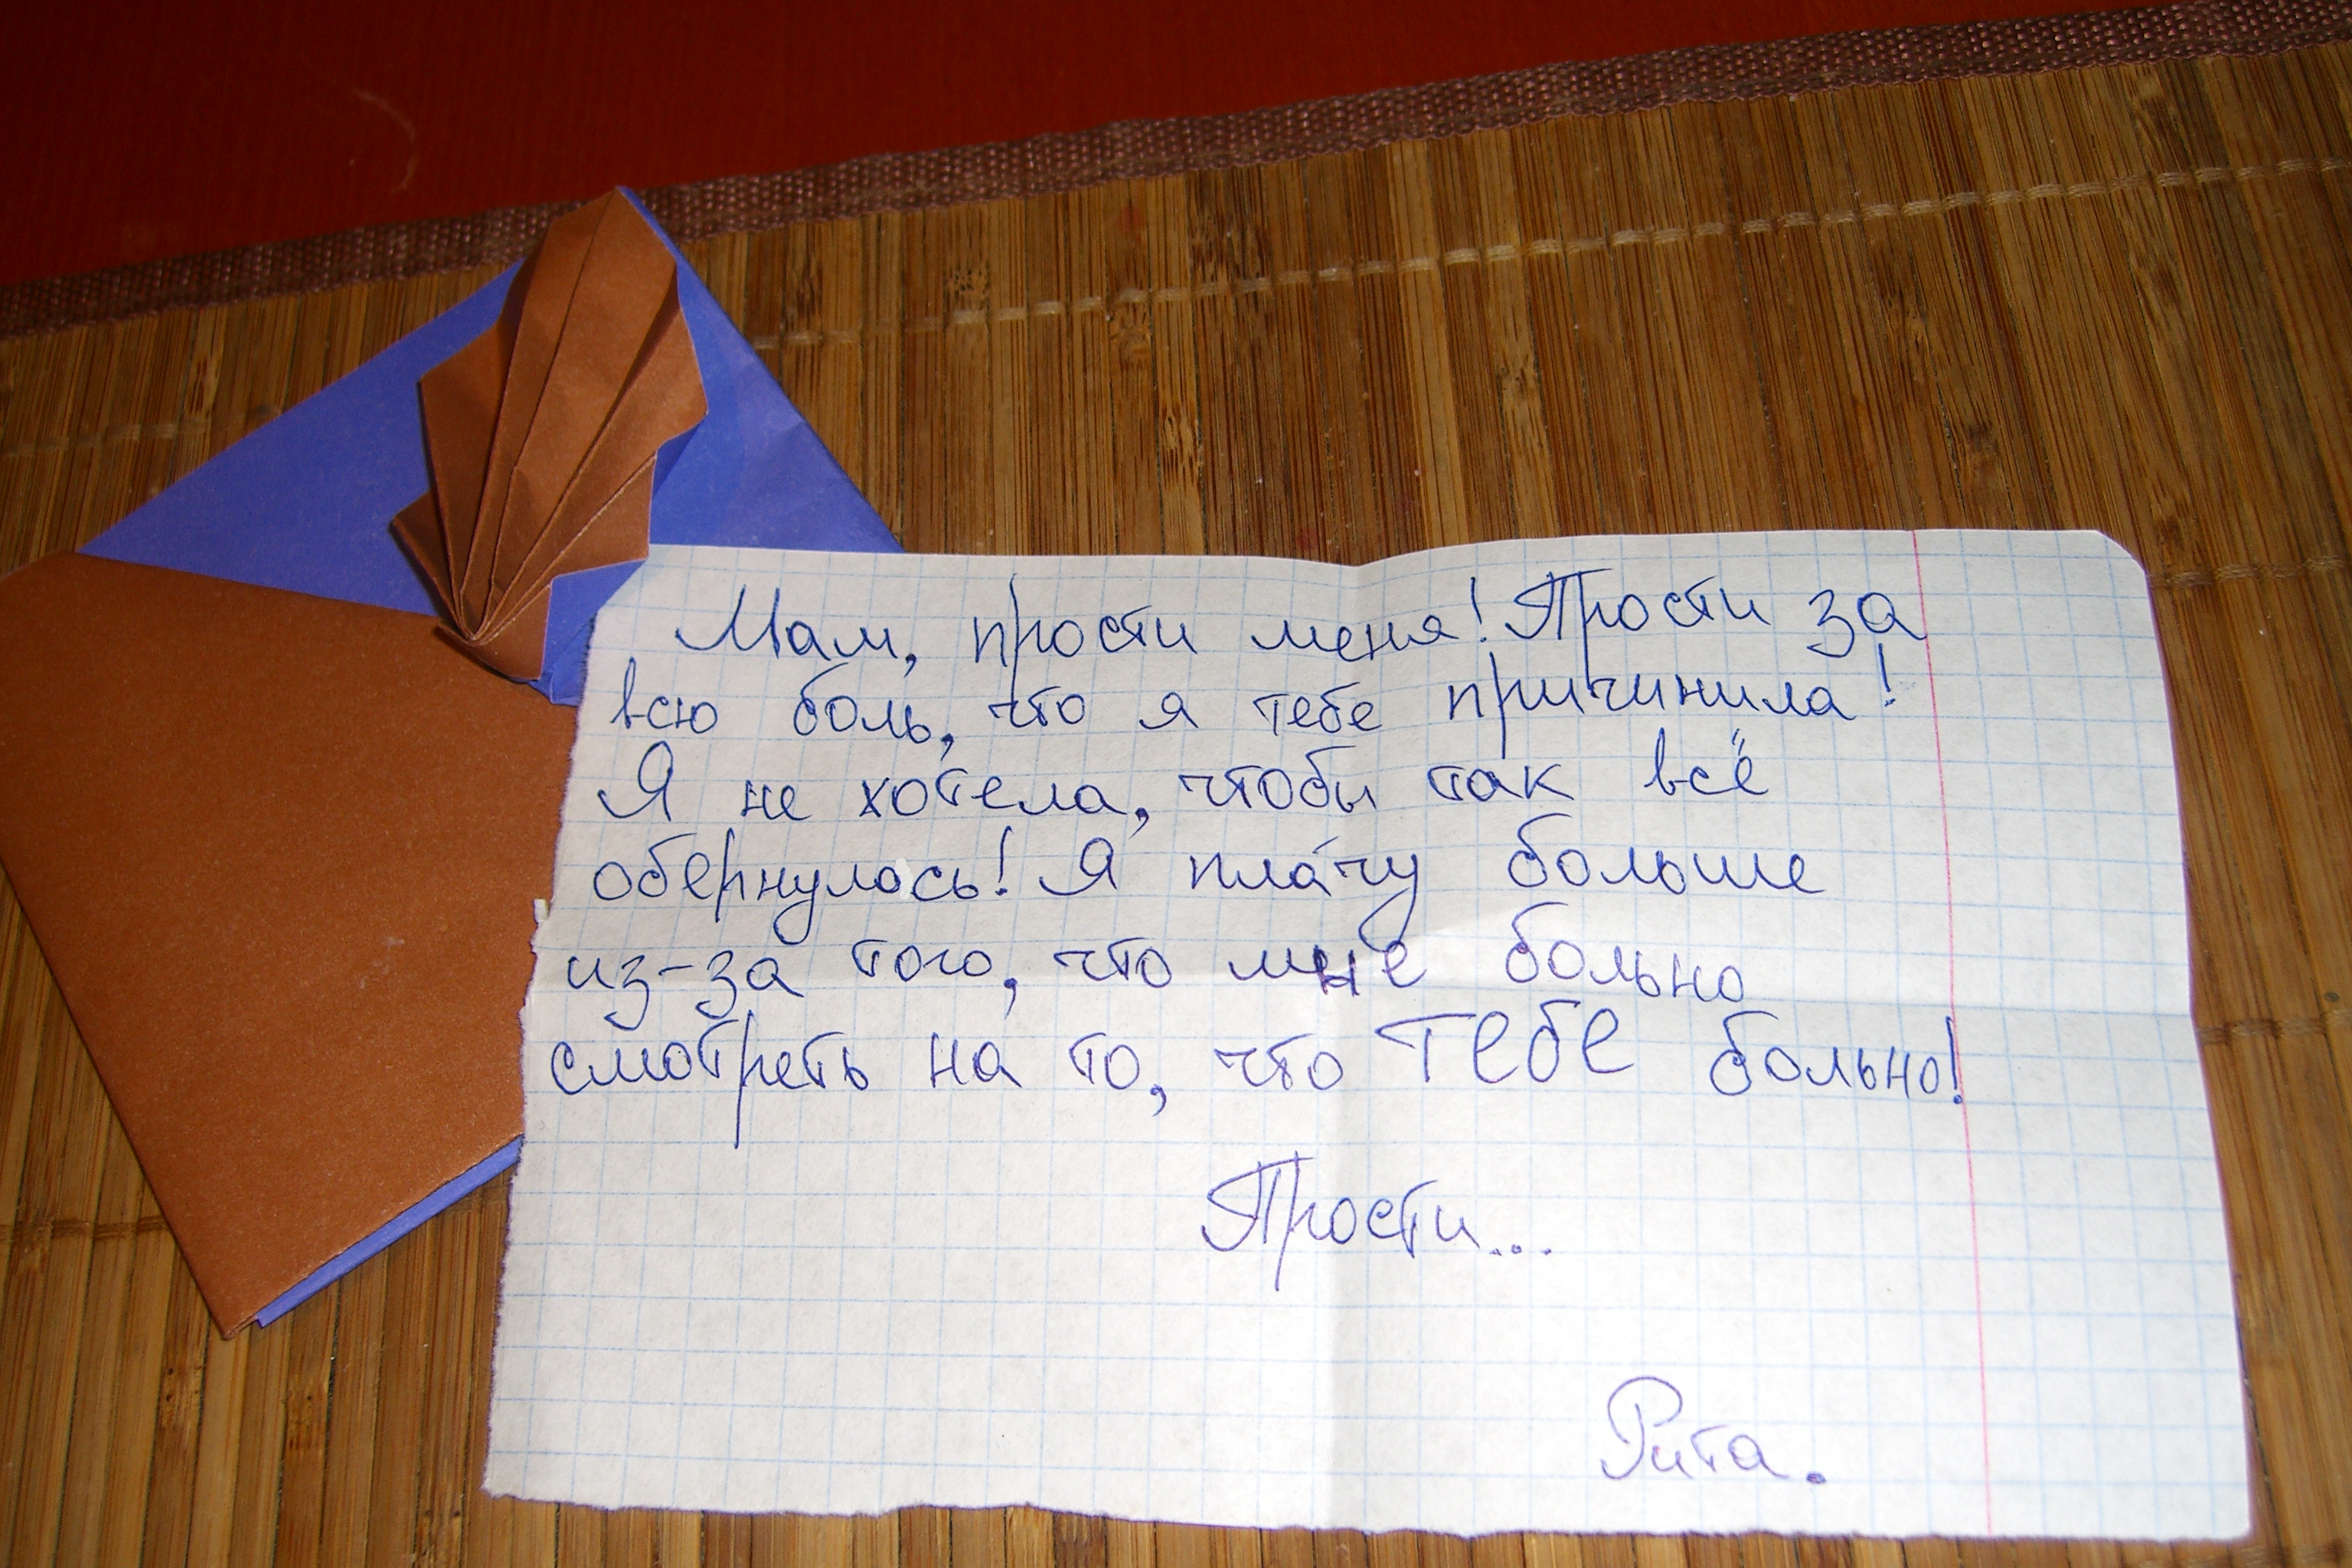 Мам, прости меня! Прости за
всю боль, что я тебе причинила!
Я не хотела, чтобы так всё
обернулось! Я пла́чу больше
из-за того, что мне больно
смотреть на то, что ТЕБЕ больно!
Прости...
Рита.